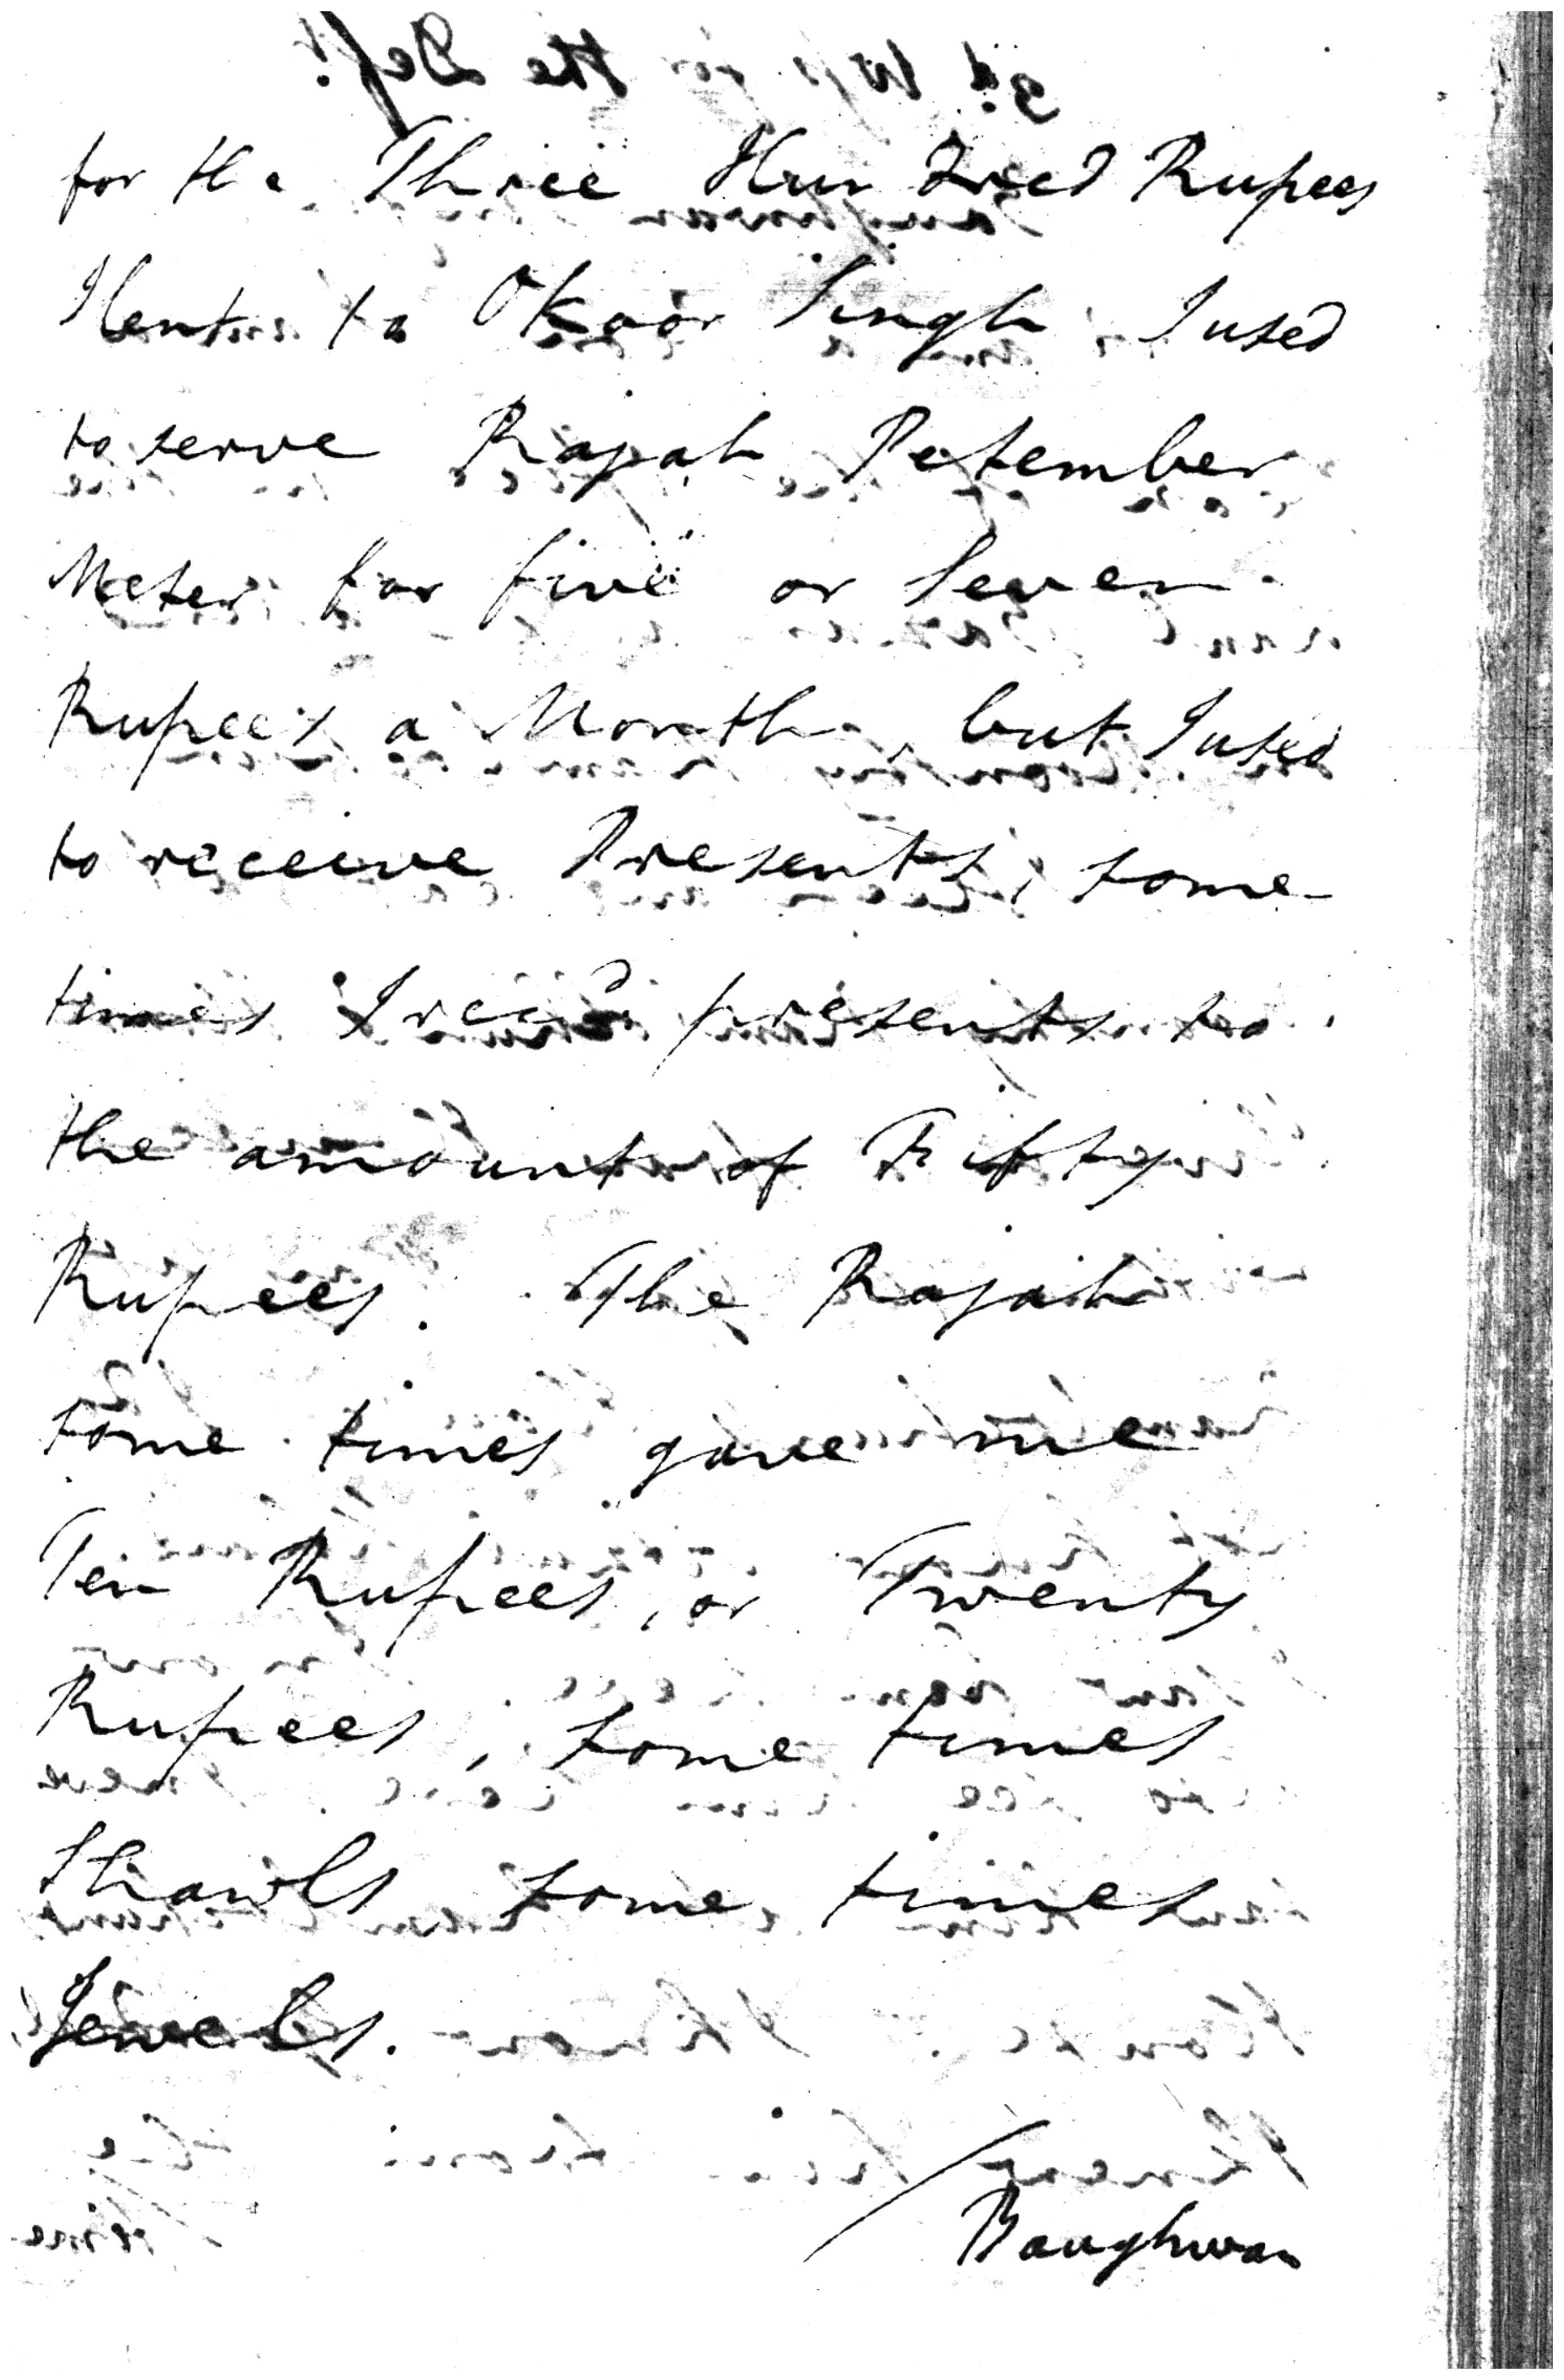 for the Three Hundred Rupees
I lent to Okoor Singh I used
to serve Rajah Petember
Meter for five or Seven
Rupees a Month, but I used
to receive Presents, some-
times I recd presents to
the amount of Fifty
Rupees. The Rajah
some times gave me
Ten Rupees, or Twenty
Rupees, some times
Shawls some times
Jewels.
Baughwan